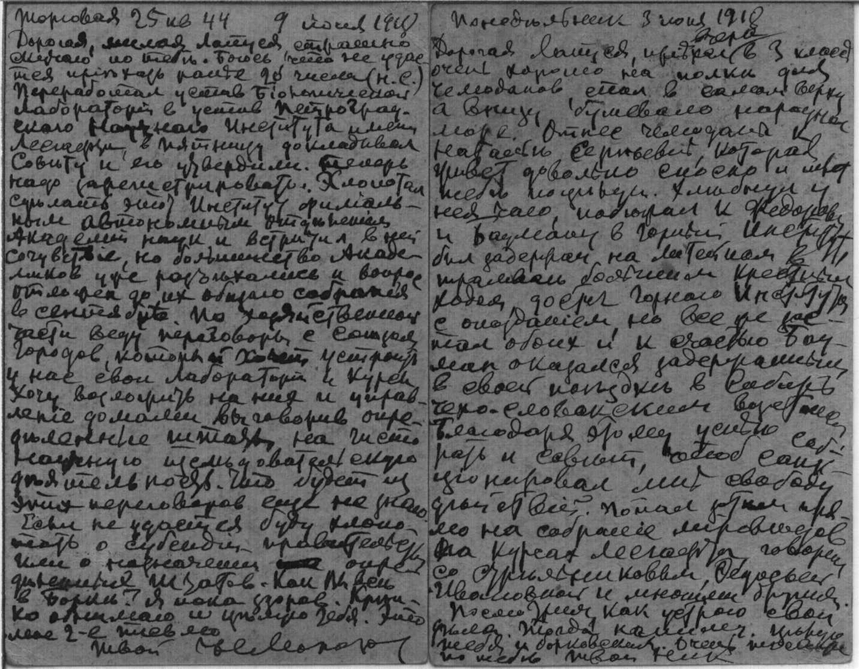 Торговая 25 кв 44 9 июня 1918
Дорогая, милая Лапуся, страшно
скучаю по тебе. Боюсь, что не удас
тся приехать ранее 20 числа (н.с.)
Переработал устав Біологической
Лаборатории в устав Петроград-
ского Научного Института имени
Лесгафта, в пятницу докладывал
Совету и его утвердили. Теперь
надо зарегистрировать. Хлопотал
сделать этот Институт
ным автономным отделением
Академии наук и встретил в ней
сочувствие, но большинство Акаде-
миков уже разъехались и вопрос
отложен до их общего собрания
в сентябре. По хозяйственной
части веду переговоры с Союзом
Городов, который хочет устроить
у нас свои Лаборатории и Курсы
Хочу возложить на них и управ-
ление домами выговорив опре-
деленные штаты на чисто
научную исследовательскую
деятельность. Что будет из
этих переговоров еще не знаю.
Если не удастся буду хлопо-
тать о субсидии правительства
или о назначении опре
деленных штатов. Как Вы все
в Борке? Я пока здоров. Креп-
ко обнимаю и целую тебя. Это
мое 2-е письмо
Твой
Понедельник 3 июня 1918
вчера
Дорогая Лапуся, приехал в 3 классе
очень хорошо на полке для
чемоданов спал в самом верху
а внизу бушевало народное
море. Отнес чемоданы к
Сергеевне, которая
живет довольно сносно и
тебе поцелуи. у
нея чаю, побежал к Федорову
и Бауману в Горный Институт
был задержан на Литейном в
трамвае крестным
ходом, достиг Горного Института
с опозданием, но все же зас-
тал обоих и к счастью Бау-
ман оказался задержанным
в своей поездке в Сибирь
чехо-словакским возстанием
Благодаря этому успел соб-
рать и совет, санк-
ционировал мне свободу
действий. Попал затем пря-
мо на собрание мироведов
на Курсах Лесгафта, говорил
со Стрельниковым,
Ивановной и многими другими.
Посмотрим как устрою свои
дела. Тогда напишу. Целую
тебя и борковских. Очень
по тебе Твой